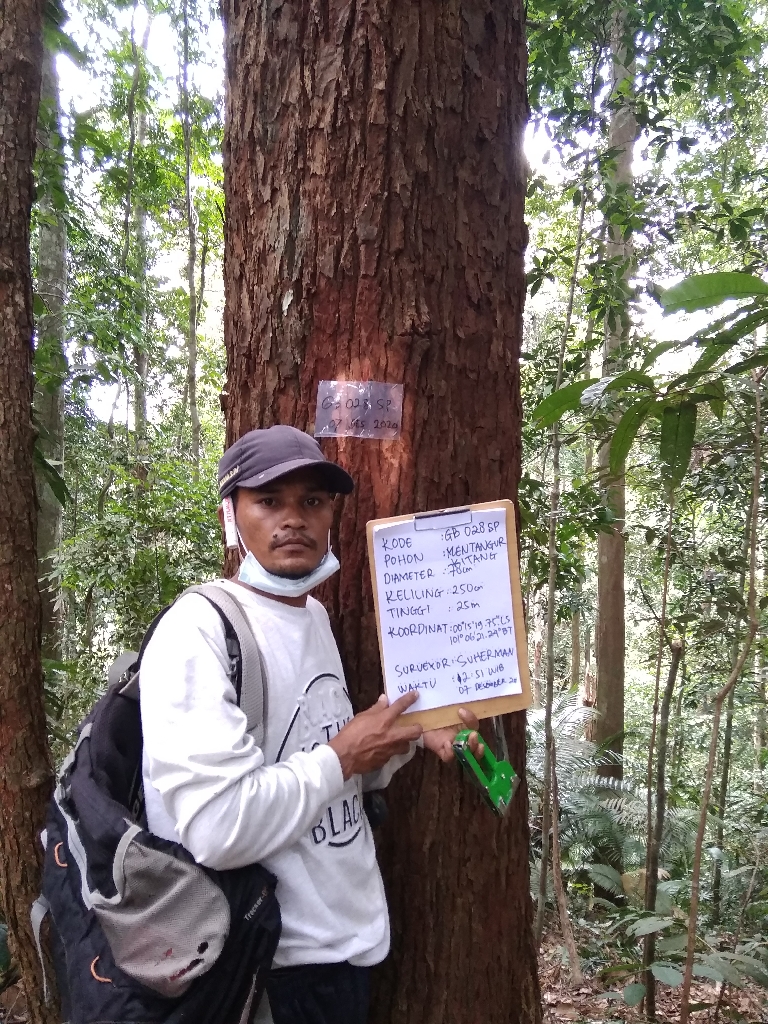 Gb 028 SP
07 DES 2020
KODE : Gb 028 SP
POHON : MENTANGUR
KITANG
DIAMETER : 78 cm
KELILING : 250 cm
TINGGI : 25 m
KOORDINAT : 00°15'19.75" LS
101°06'21.29" BT
SURVEYOR : SUHERMAN
WAKTU : 12:51 WIB
07 DESEMBER 20
THE
BLACK